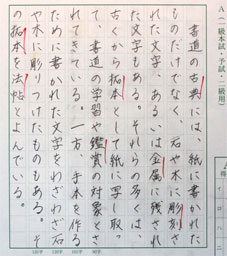 A（一級本試・予試・二級用）
書道の古典には、紙に書かれた
ものだけでなく、石や木に彫刻さ
れた文字、あるいは金属に残され
た文字もある。それらの多くは、
古くから拓本として紙に写し取っ
て、書道の学習や鑑賞の対象とさ
れてきている。一方、手本を作る
ために書かれた文字をわざわざ石
や木に彫りつけたものもある。そ
の拓本を法帖とよんでいる。